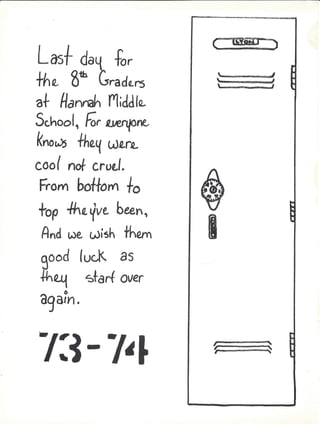 Last day for
the 8th Graders
at Hannah Middle
School, For everyone
Knows they were
cool not cruel.
From bottom to
top they've been,
And we wish them
good luck as
they start over
again.
73-74
LYON